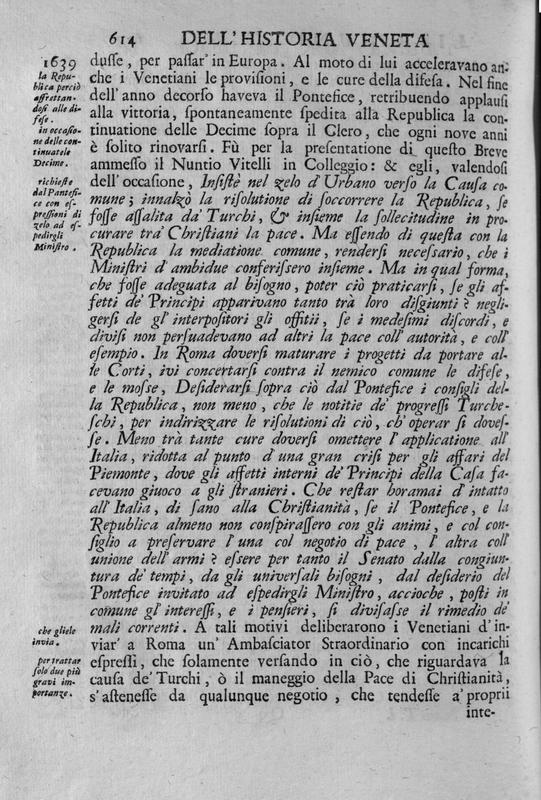 614 DELL'HISTORIA VENETA
1639
la Repu-
blica perciò
affrettan-
dosi alle di-
fese.
in occasio-
ne delle con-
tinuatele
Decime.
richieste
dal Pantefi-
ce con es-
pressioni di
zelo ad es-
pedirgli
Ministro.
che gliele
invia.
per trattar
solo due più
gravi im-
portanze.
dusse, per passar' in Europa. Al moto di lui acceleravano an-
che i Venetiani le provisioni, e le cure della difesa. Nel fine
dell'anno decorso haveva il Pontefice, retribuendo applausi
alla vittoria, spontaneamente spedita alla Republica la con-
tinuatione delle Decime sopra il Clero, che ogni nove anni
è solito rinovarsi. Fù per la presentatione di questo Breve
ammesso il Nuntio Vitelli in Colleggio: & egli, valendosi
dell'occasione, Insistè nel zelo d'Urbano verso la Causa co-
mune; innalzò la risolutione di soccorrere la Republica, se
fosse assalita da' Turchi, & insieme la sollecitudine in pro-
curare trà Christiani la pace. Ma essendo di questa con la
Republica la mediatione comune, rendersi necessario, che i
Ministri d'ambidue conferissero insieme. Ma in qual forma,
che fosse adeguata al bisogno, poter ciò praticarsi, se gli af-
fetti de' Principi apparivano tanto trà loro disgiunti? negli-
gersi de gl'interpositori gli offitii, se i medesimi discordi, e
divisi non persuadevano ad altri la pace coll'autorità, e coll'
esempio. In Roma doversi maturare i progetti da portare al-
le Corti, ivi concertarsi contra il nemico comune le difese,
e le mosse, Desiderarsi sopra ciò dal Pontefice i consigli del-
la Republica, non meno, che le notitie de' progressi Turche-
schi, per indirizzare le risolutioni di ciò, ch'operar si doves-
se. Meno trà tante cure doversi omettere l'applicatione all'
Italia, ridotta al punto d'una gran crisi per gli affari del
Piemonte, dove gli affetti interni de' Principi della Casa fa-
cevano giuoco a gli stranieri. Che restar horamai d'intatto
all'Italia, di sano alla Christianità, se il Pontefice, e la
Republica almeno non conspirassero con gli animi, e col con-
siglio a preservare l'una col negotio di pace, l'altra coll'
unione dell'armi? essere per tanto il Senato dalla congiun-
tura de' tempi, da gli universali bisogni, dal desiderio del
Pontefice invitato ad espedirgli Ministro, accioche, posti in
comune gl'interessi, e i pensieri, si divisasse il rimedio de'
mali correnti. A tali motivi deliberarono i Venetiani d'in-
viar' a Roma un' Ambasciator Straordinario con incarichi
espressi, che solamente versando in ciò, che riguardava la
causa de' Turchi, ò il maneggio della Pace di Christianità,
s'astenesse da qualunque negotio, che tendesse a' proprii
inte-